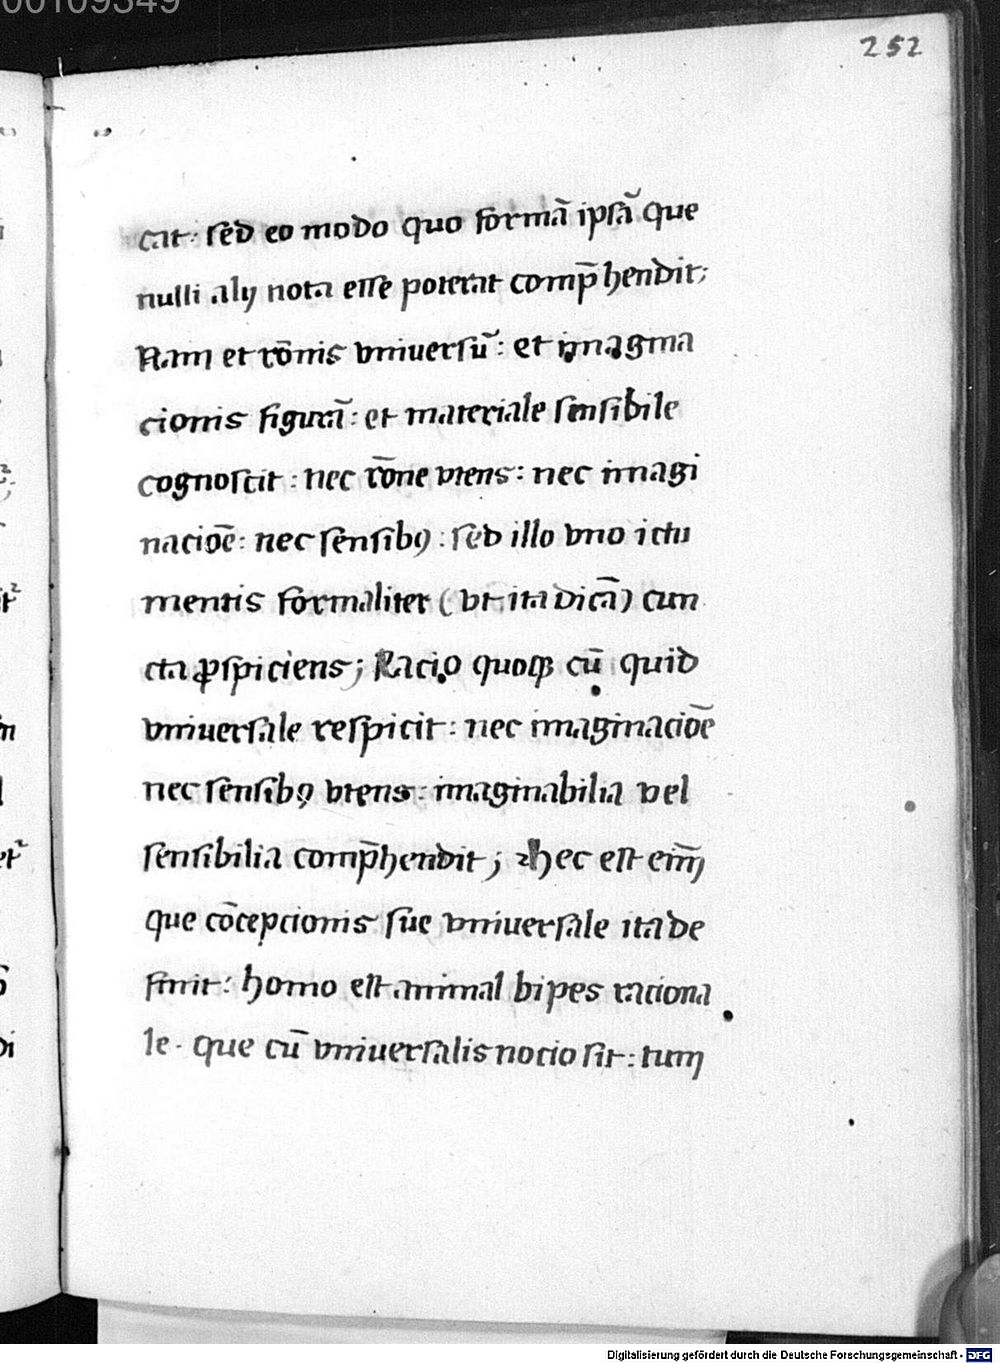 00109349
252
cat: sed eo modo quo formā ipsā que
nulli alij nota esse poterat comp̄hendit;
Nam et rōnis vniuersū: et ymagina
cionis figurā: et materiale sensibile
cognoscit: nec rōne vtens: nec imagi
nacioē: nec sensibꝯ: sed illo vno ictu
mentis formaliter (vt ita dicā) cun
cta ꝓspiciens; Racio quoqꝫ cū quid
vniuersale respicit: nec imaginacioē
nec sensibꝯ vtens: imaginabilia vel
sensibilia comp̄hendit; Hec est em̄
que cōcepcionis sue vniuersale ita de
finit: homo est animal bipes raciona
le. que cū vniuersalis nocio sit: tum
Digitalisierung gefördert durch die Deutsche Forschungsgemeinschaft - DFG